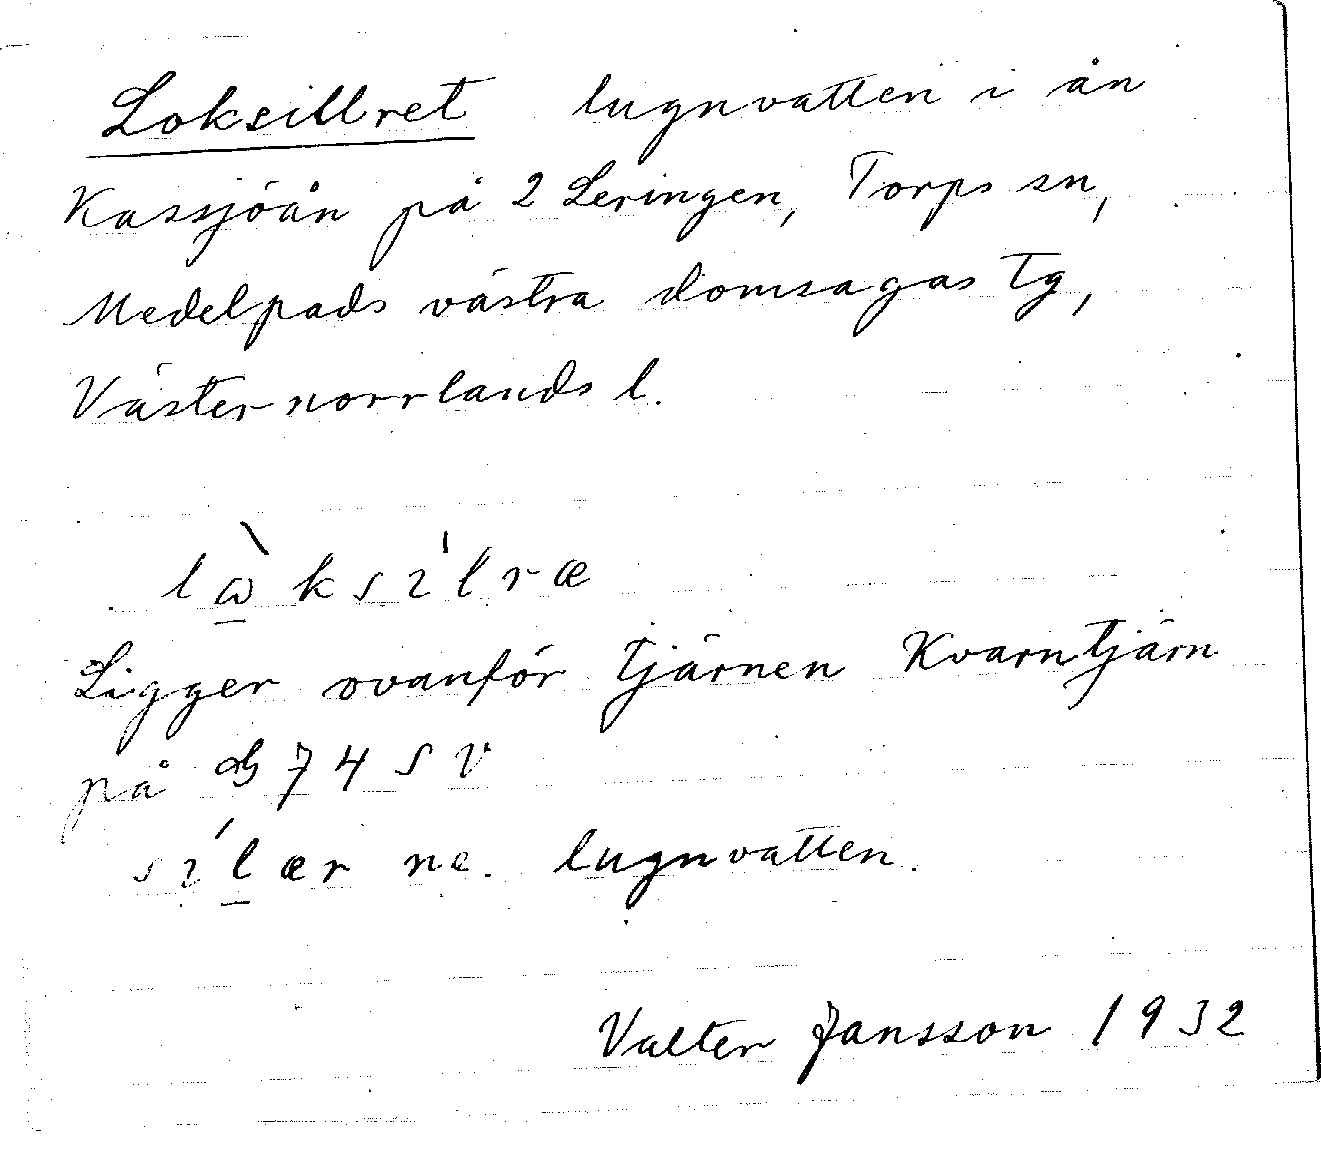 Loksillret lugnvatten i ån
Kassjöån på 2 Leringen, Torps sn,
Medelpads västra domsagas tg,
Västernorrlands l.
lὼ̲ksıˈlræ
Ligger ovanför tjärnen Kvarntjärn
på 74 SV
sıˊl̲ær ne. lugnvatten.
Valter Jansson 1932